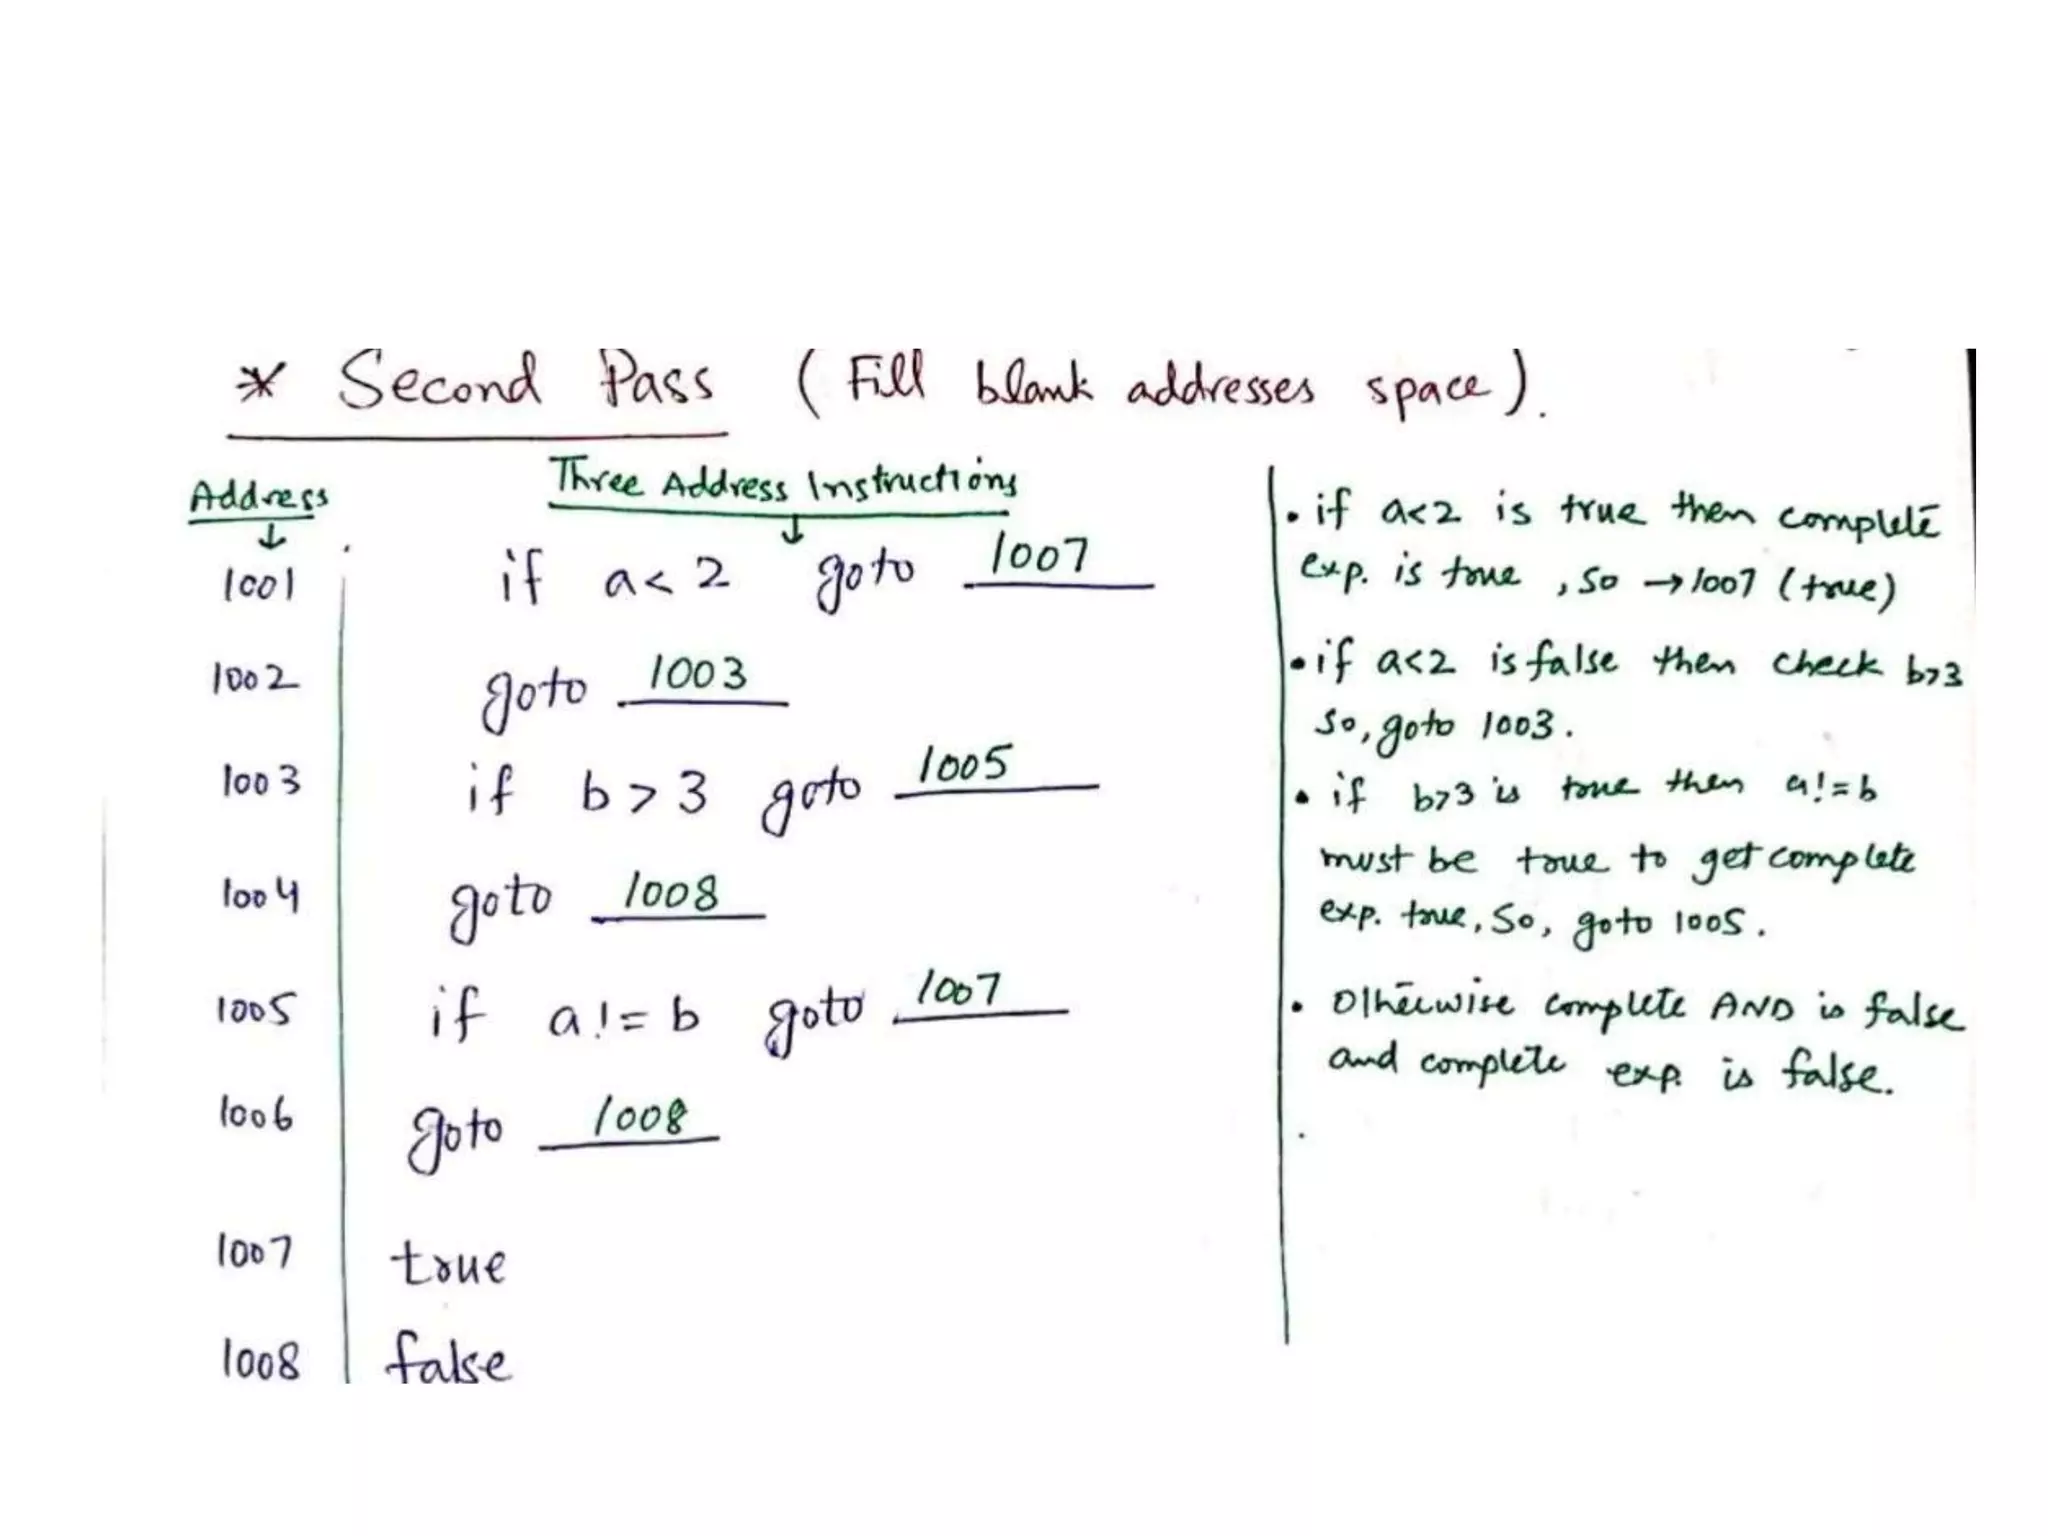 * Second Pass (Fill blank addresses space).
Address Three Address Instructions
1001 if a<2 goto 1007
1002 goto 1003
1003 if b>3 goto 1005
1004 goto 1008
1005 if a!=b goto 1007
1006 goto 1008
1007 true
1008 false
• if a<2 is true then complete
exp. is true, so → 1007 (true)
• if a<2 is false then check b>3
so, goto 1003.
• if b>3 is true then a!=b
must be true to get complete
exp. true, So, goto 1005.
• Otherwise complete AND is false
and complete exp. is false.